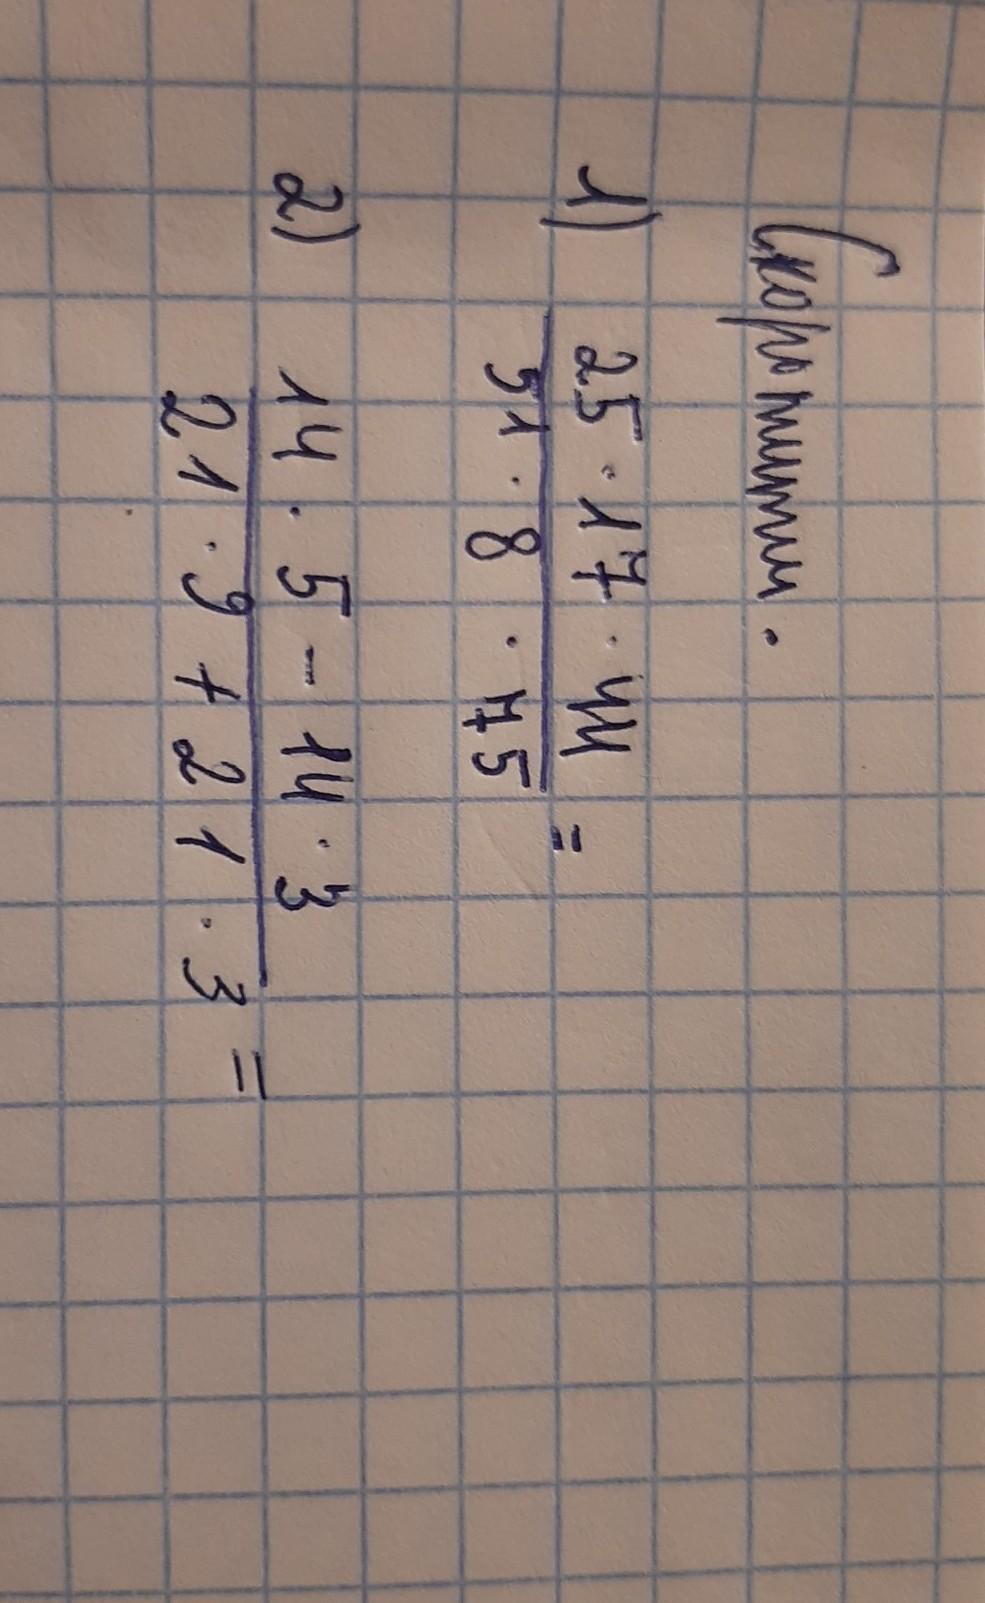 Скоротити.
1) 25 · 17 · 44
51 · 8 · 75 =
2) 14 · 5 - 14 · 3
21 · 9 + 21 · 3 =